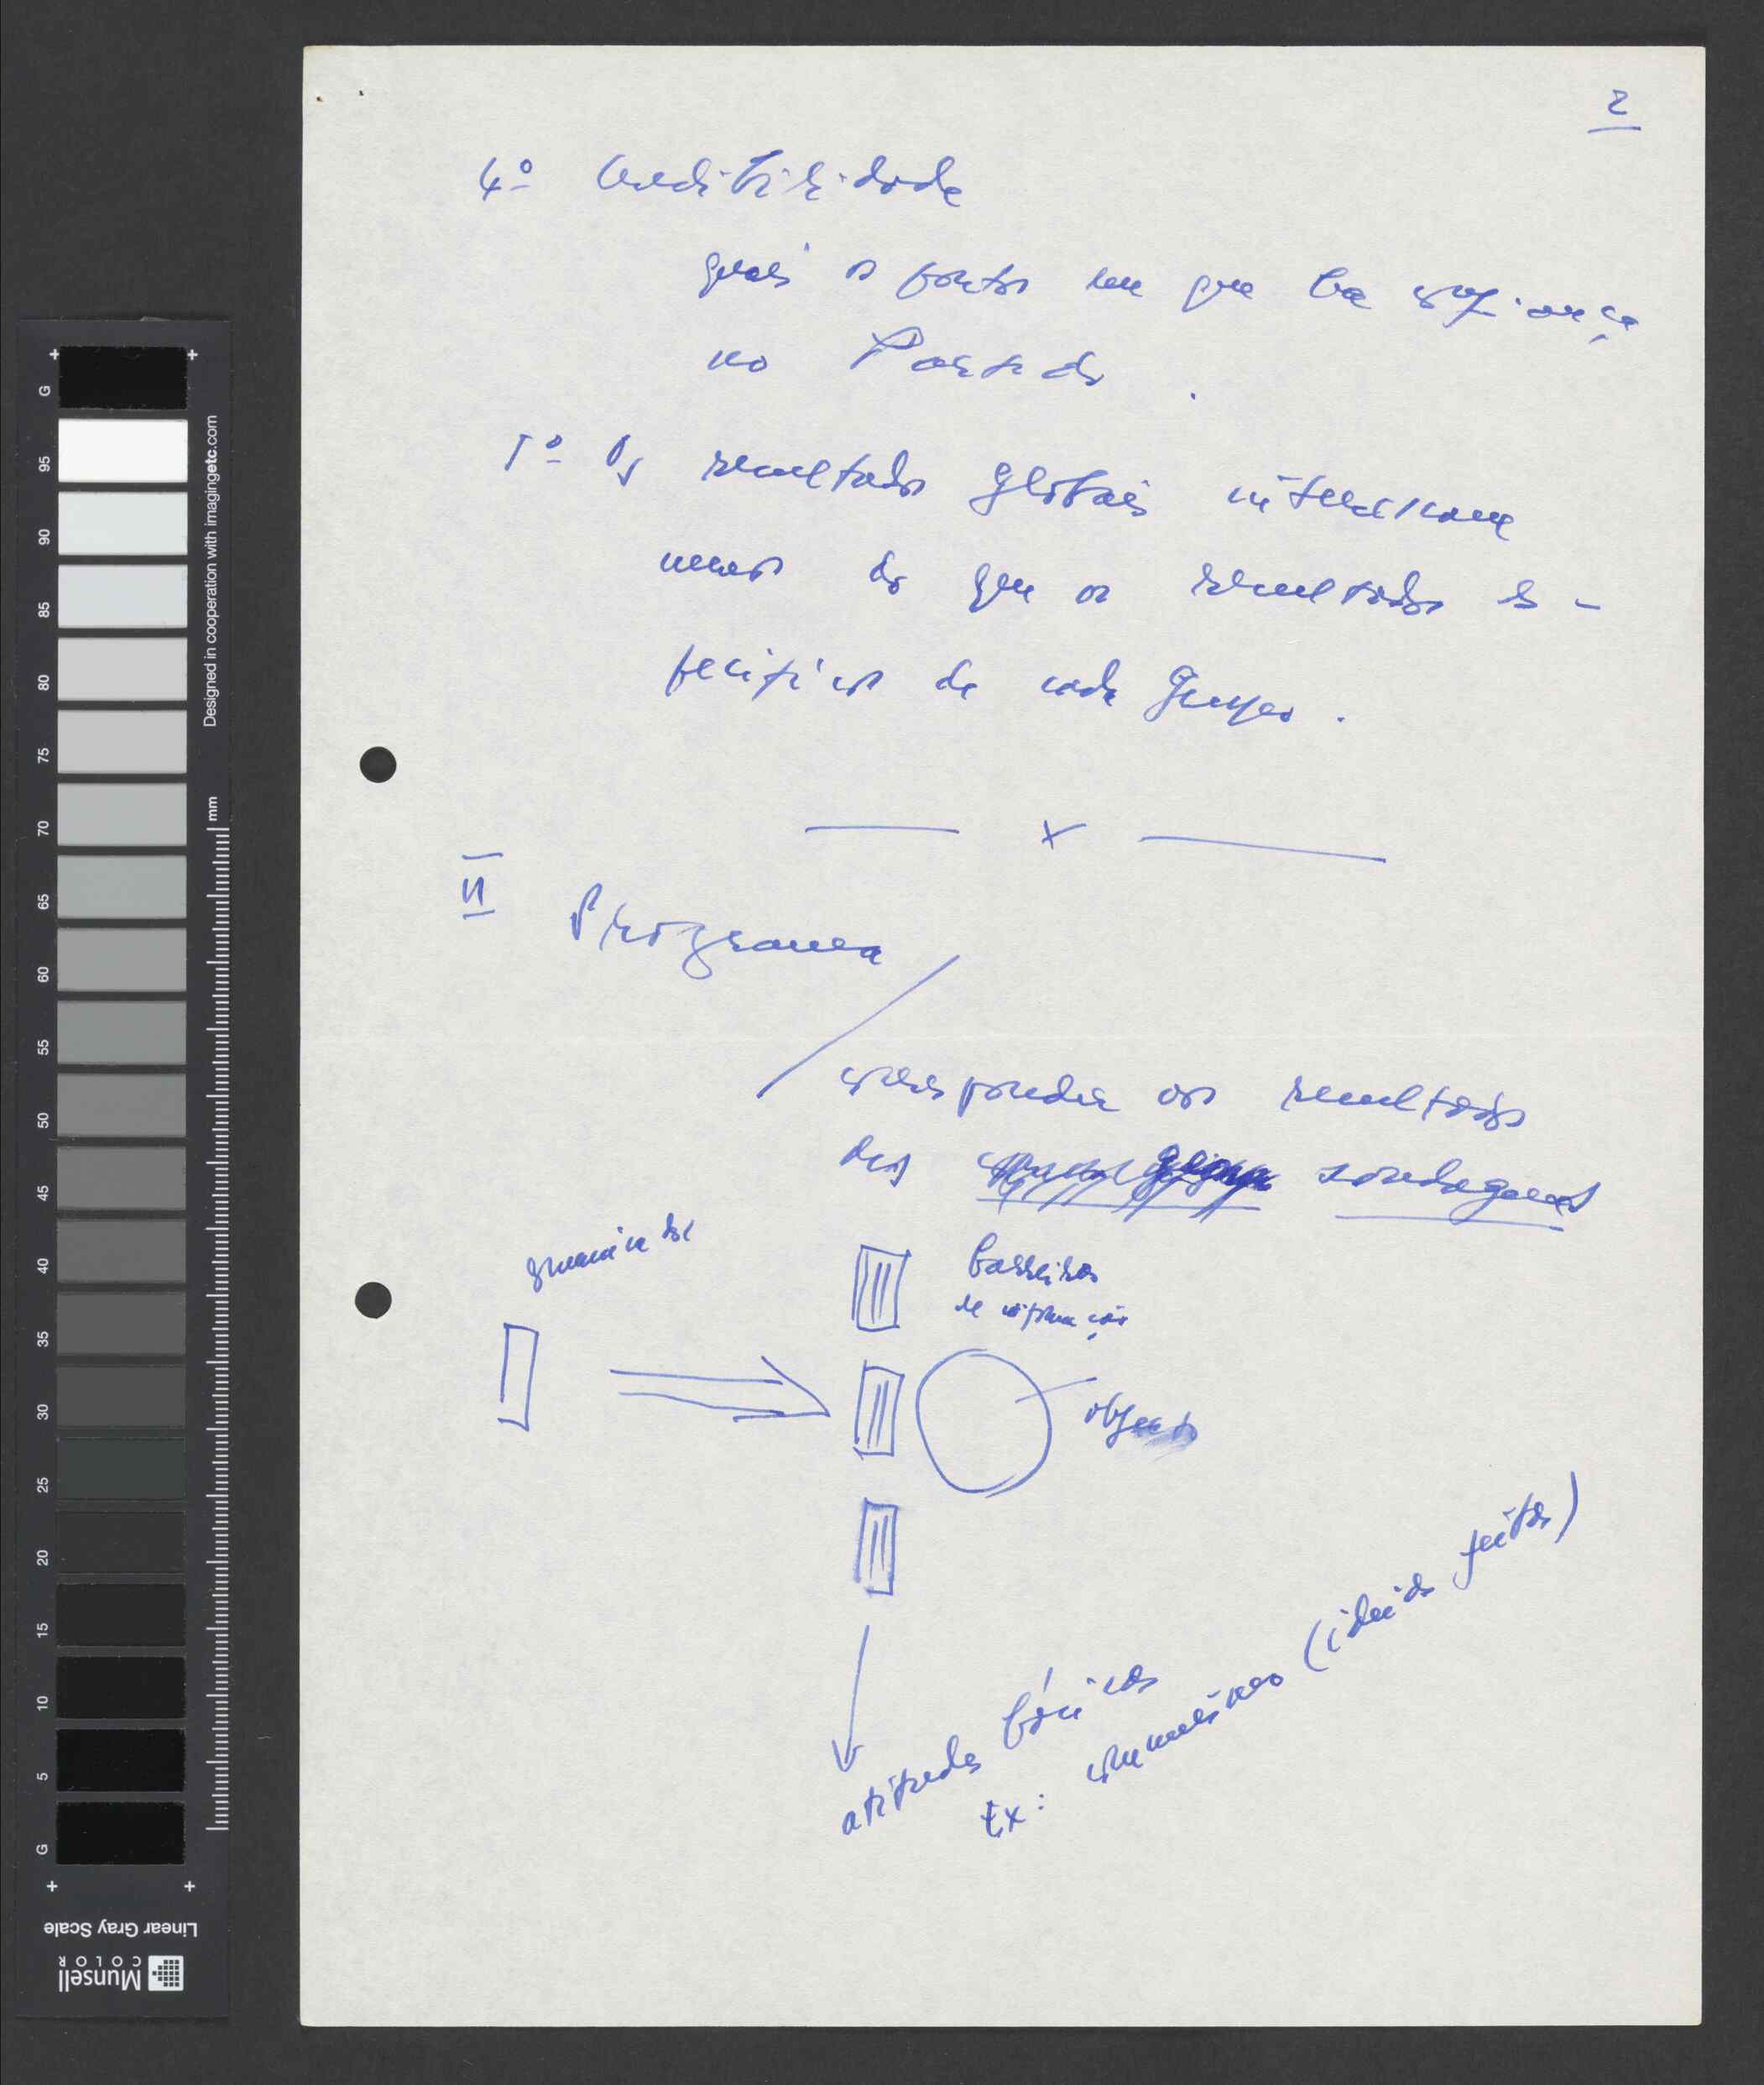 2
4º Credibilidade
quais os pontos em que há confiança
no Partido.
5º Os resultados globais interessam
menos do que os resultados es-
pecíficos de cada Grupo.
x
II
Programa
corresponder aos resultados
das sondagens
barreiras
de informação
objecto
atitudes básicas
Ex: comunismo (ideias feitas)
G
95
90
85
80
75
70
65
60
55
50
45
40
35
30
25
20
15
10
5
G
mm
Designed in cooperation with imagingetc.com
Linear Gray Scale
Munsell
COLOR